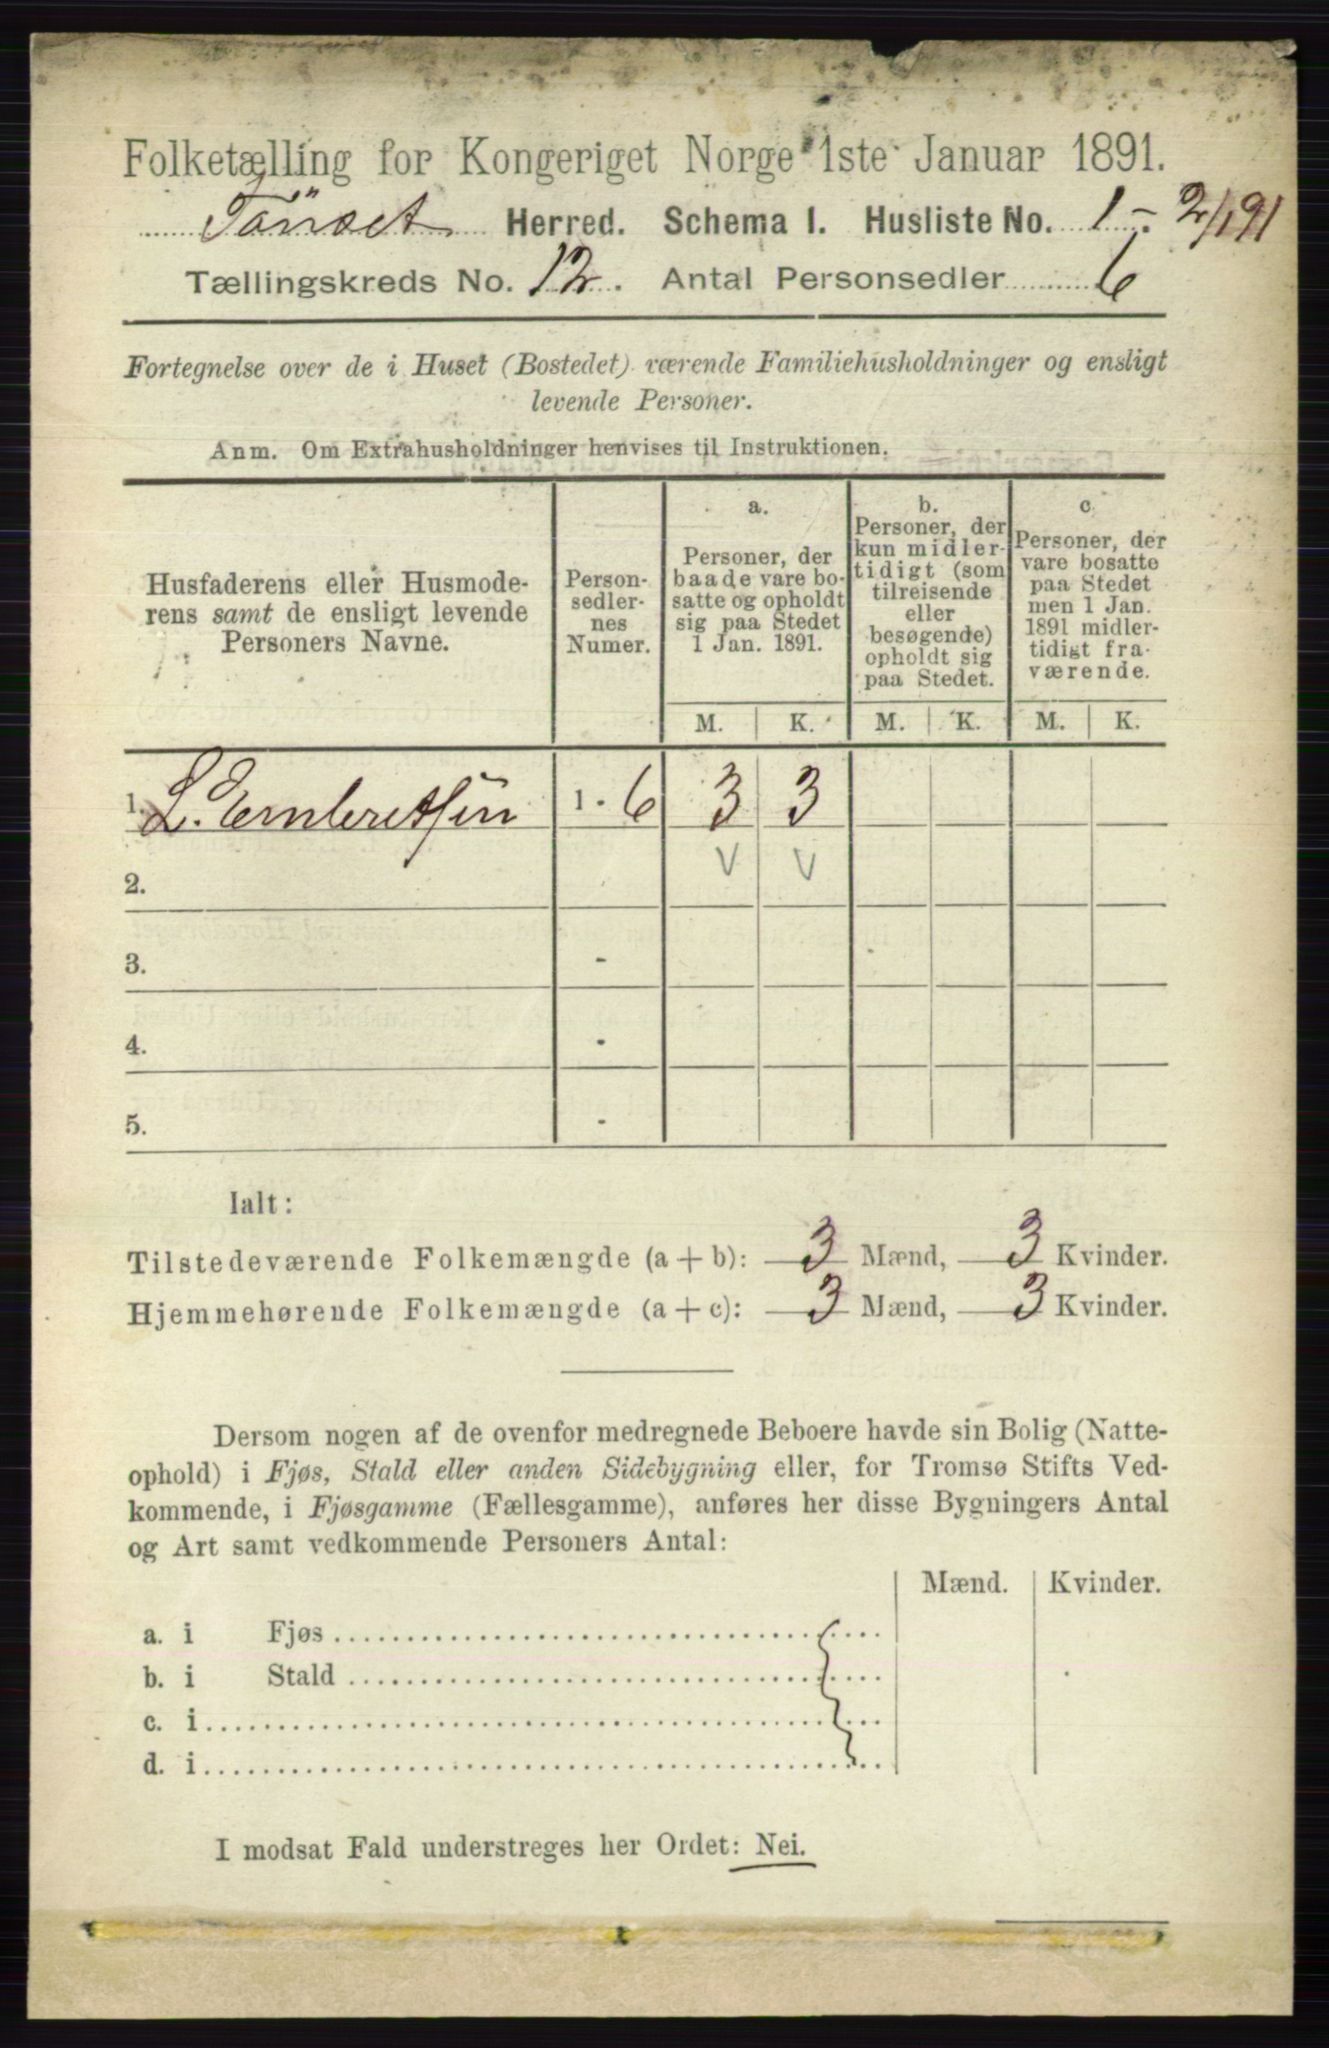 Folketælling for Kongeriget Norge 1ste Januar 1891.
Tönset Herred. Schema I. Husliste No. 1 - 2/1 91
Tællingskreds No. 12. Antal Personsedler 6
Fortegnelse over de i Huset (Bostedet) værende Familiehusholdninger og ensligt
levende Personer.
Anm. Om Extrahusholdninger henvises til Instruktionen.
Husfaderens eller Husmode-
rens samt de ensligt levende
Personers Navne.
Person-
sedler-
nes
Numer.
a.
Personer, der
baade vare bo-
satte og opholdt
sig paa Stedet
1 Jan. 1891.
b.
Personer, der
kun midler-
tidigt (som
tilreisende
eller
besøgende)
opholdt sig
paa Stedet.
c.
Personer, der
vare bosatte
paa Stedet
men 1 Jan.
1891 midler-
tidigt fra-
værende.
M. K. M. K. M. K.
1. L. Embretsen 1 - 6 3 3
V V
2.
3. -
4. -
5. -
Ialt:
Tilstedeværende Folkemængde (a + b): 3 Mænd, 3 Kvinder.
Hjemmehørende Folkemængde (a + c): 3 Mænd, 3 Kvinder.
Dersom nogen af de ovenfor medregnede Beboere havde sin Bolig (Natte-
ophold) i Fjøs, Stald eller anden Sidebygning eller, for Tromsø Stifts Ved-
kommende, i Fjøsgamme (Fællesgamme), anføres her disse Bygningers Antal
og Art samt vedkommende Personers Antal:
Mænd. Kvinder.
a. i Fjøs
b. i Stald
c. i
d. i
I modsat Fald understreges her Ordet: Nei.